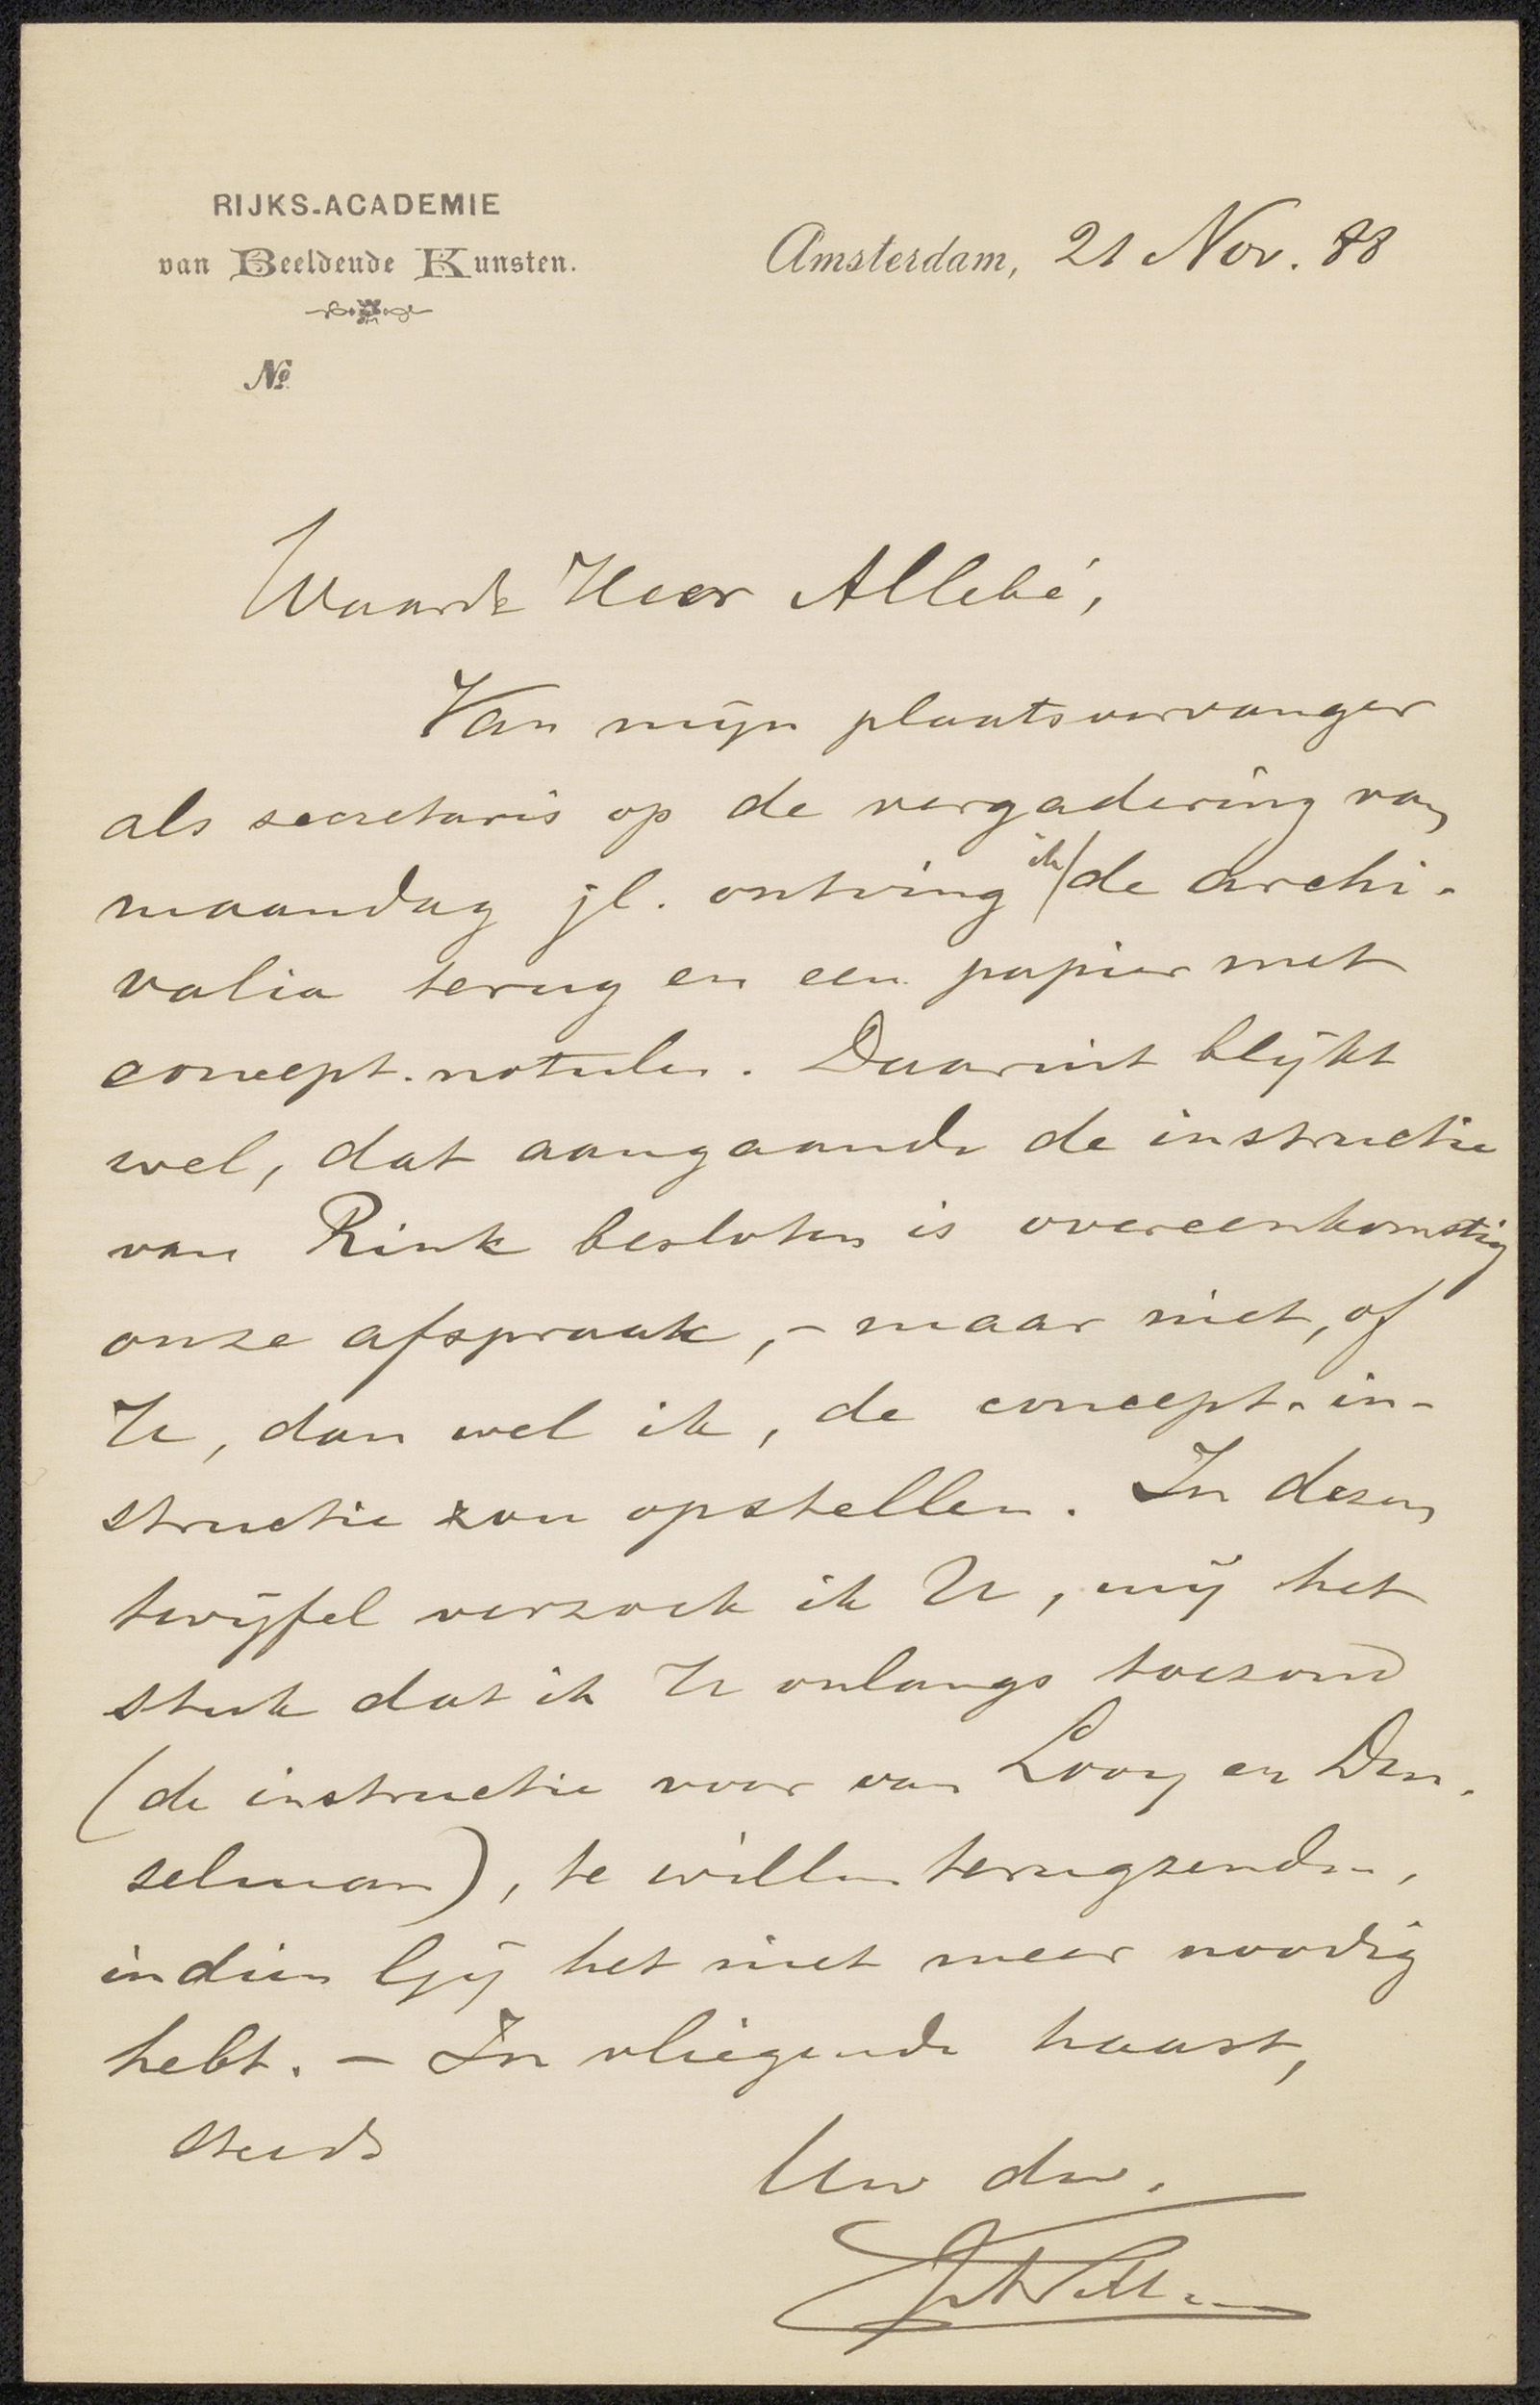 RIJKS-ACADEMIE
van Beeldende Kunsten.
Amsterdam, 21 Nov. 88
No
Waarde Heer Allebé,
Van mijn plaatsvervanger
als secretaris op de vergadering van
maandag jl. ontving ik de archi-
valia terug en een papier met
concept-notulen. Daaruit blijkt
wel, dat aangaande de instructie
van Rink besloten is overeenkomstig
onze afspraak, – maar niet, of
U, dan wel ik, de concept-in-
structie zou opstellen. In dezen
twijfel verzoek ik U, mij het
stuk dat ik U onlangs toezond
(de instructie voor van Looy en Der-
selman), te willen terugzenden,
indien Gij het niet meer noodig
hebt. – In vliegende haast,
steeds
Uw dw.